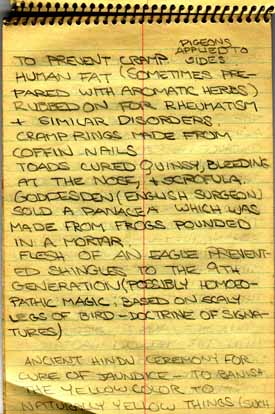 PIGEONS
APPLIED TO
TO PREVENT CRAMP SIDES
HUMAN FAT (SOMETIMES PRE-
PARED WITH AROMATIC HERBS)
RUBBED ON FOR RHEUMATISM
+ SIMILAR DISORDERS.
CRAMP RINGS MADE FROM
COFFIN NAILS
TOADS CURED QUINSY, BLEEDING
AT THE NOSE, + SCROFULA.
GODDESDEN (ENGLISH SURGEON)
SOLD A PANACEA WHICH WAS
MADE FROM FROGS POUNDED
IN A MORTAR.
FLESH OF AN EAGLE PREVENT-
ED SHINGLES TO THE 9TH
GENERATION (POSSIBLY HOMOEO-
PATHIC MAGIC; BASED ON SCALY
LEGS OF BIRD - DOCTRINE OF SIGNA-
TURES)
ANCIENT HINDU CEREMONY FOR
CURE OF JAUNDICE - TO BANISH
THE YELLOW COLOR TO
NATURALLY YELLOW THINGS (SUCH